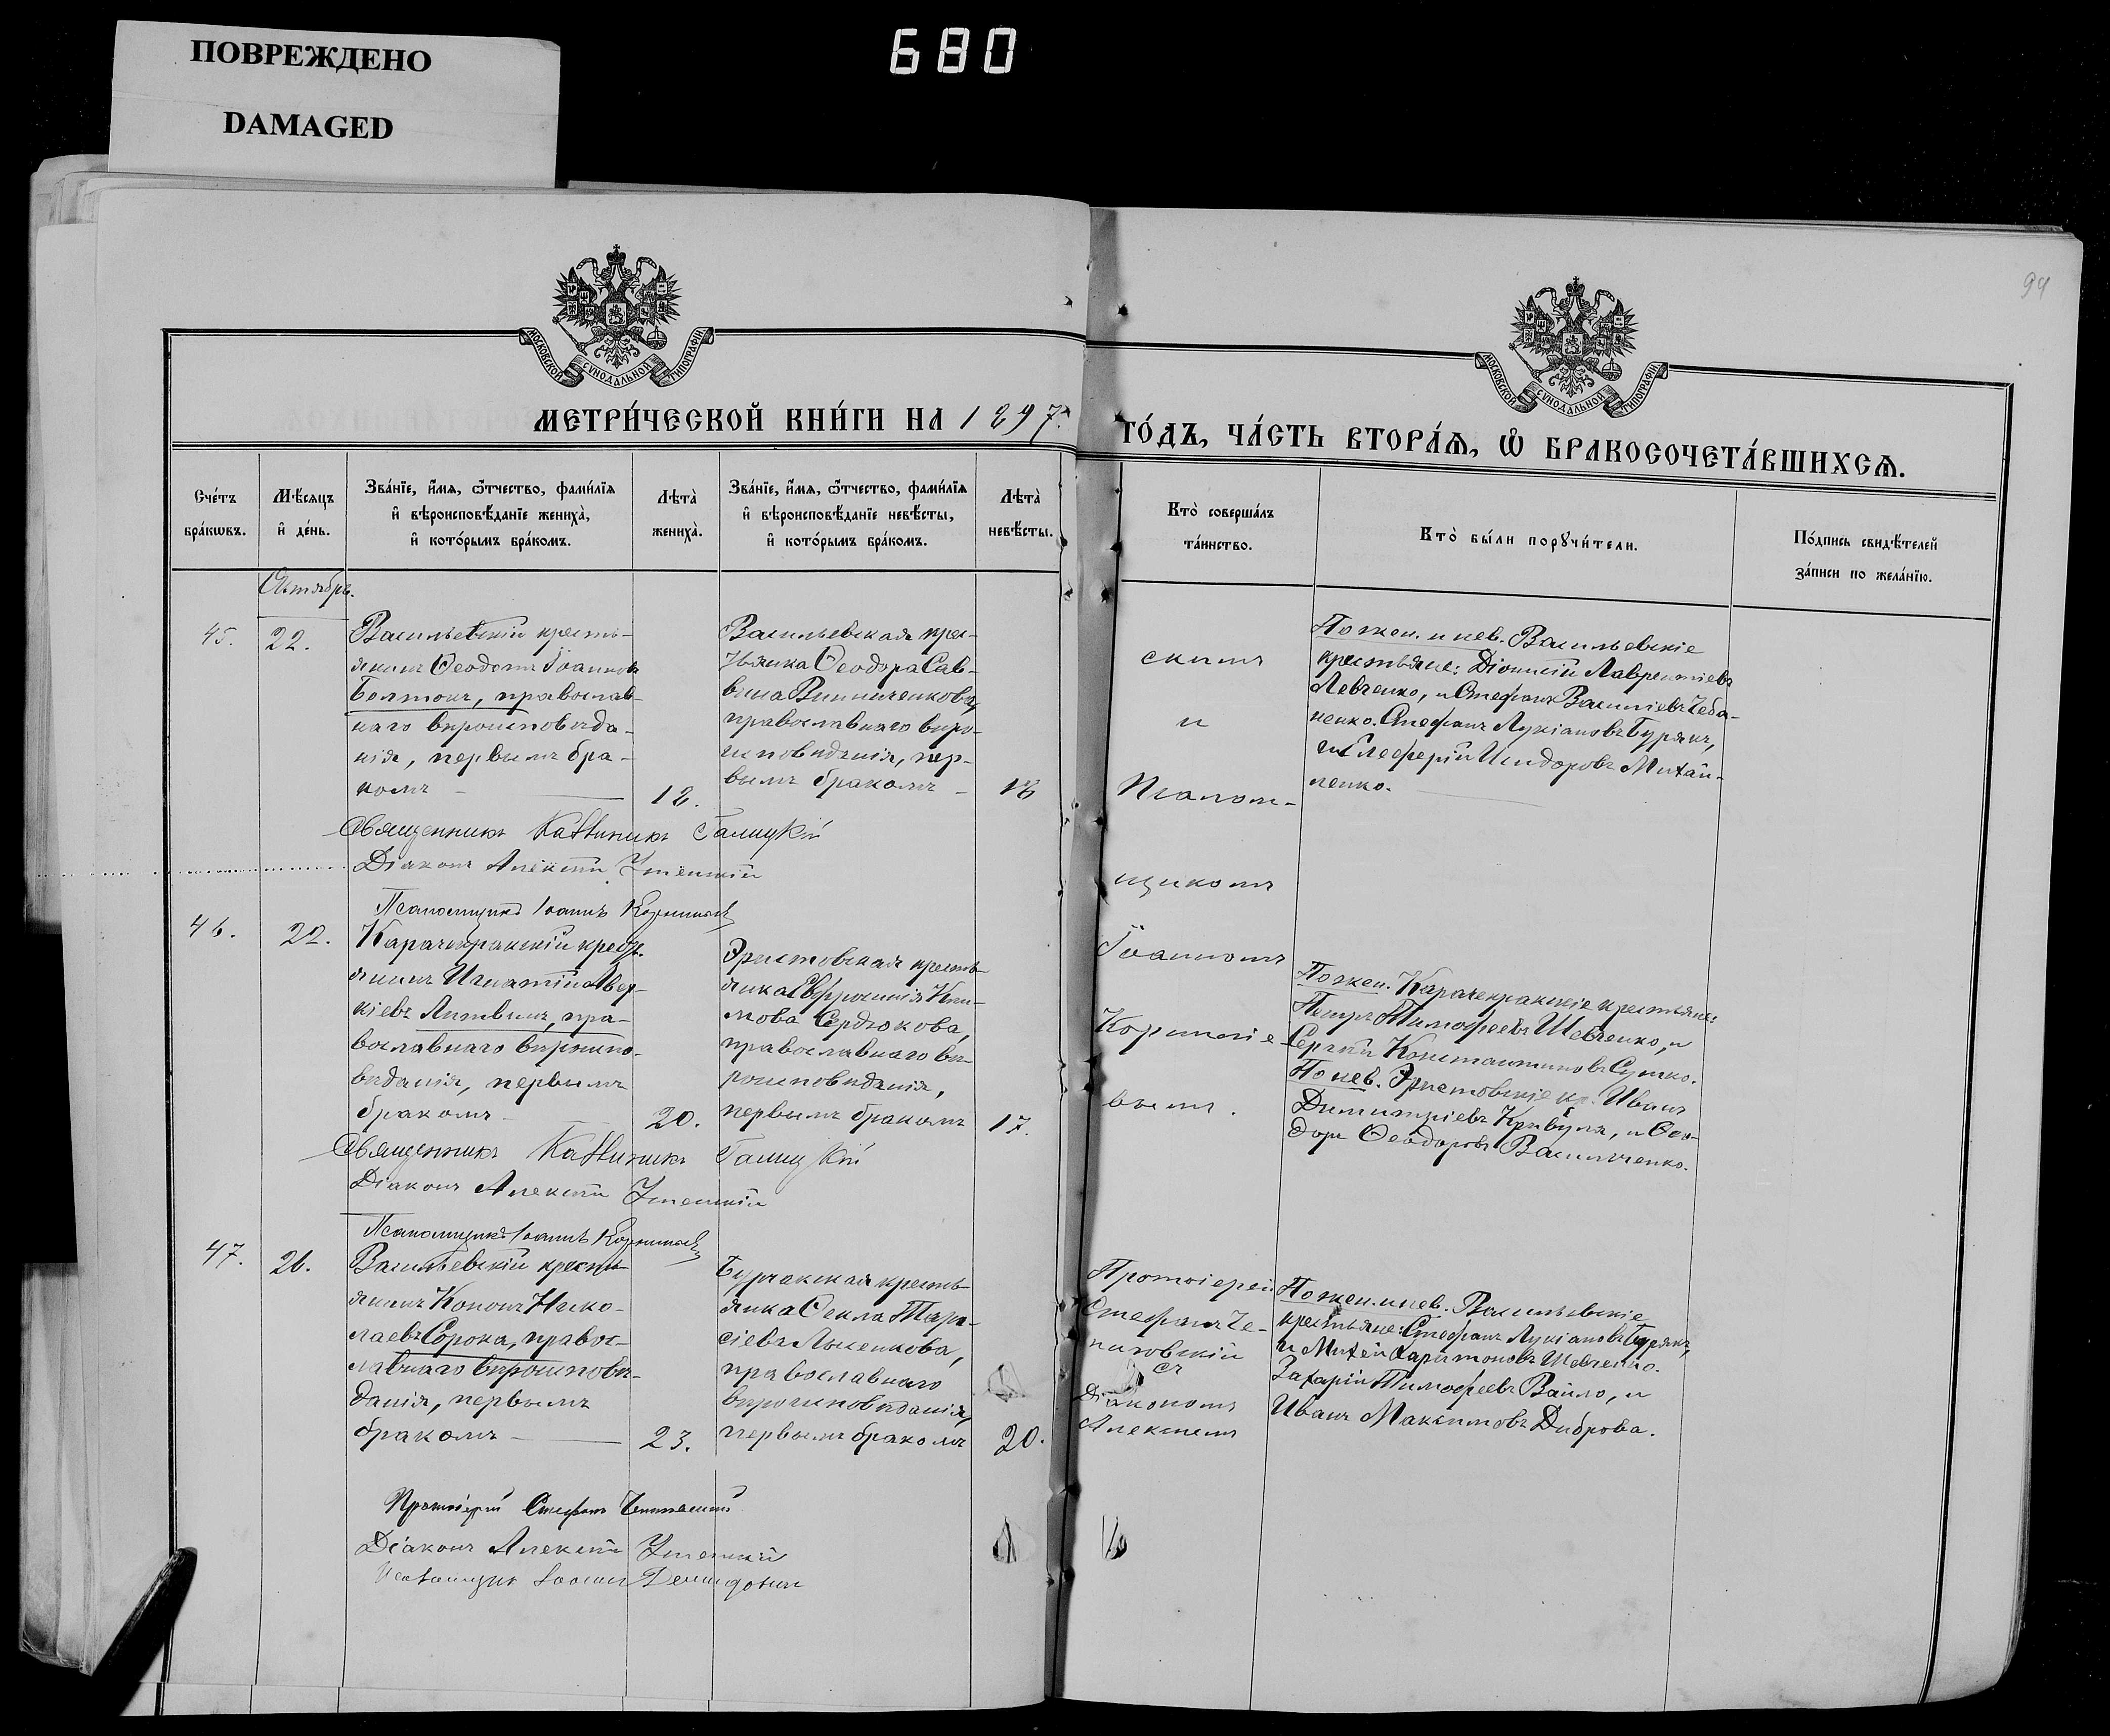 ПОВРЕЖДЕНО
DAMAGED
680
94
МОСКОВСКОЙ СѴНОДАЛЬНОЙ ТИПОГРАФІИ
МОСКОВСКОЙ СѴНОДАЛЬНОЙ ТИПОГРАФІИ
МЕТРИ́ЧЕСКОЙ КНИ́ГИ НА 1897.
ГО́ДЪ, ЧА́СТЬ ВТОРА́Ѧ, Ѡ҆ БРАКОСОЧЕТА́ВШИХСѦ.
Сче́тъ
бра́кѡвъ.
Мѣ́сяцъ
и҆ де́нь.
Зва́нїе, и҆́мя, ѻ҆́тчество, фами́лїя
и҆ вѣроисповѣ́данїе жениха̀,
и҆ кото́рымъ бра́комъ.
Лѣта̀
жениха̀.
Зва́нїе, и҆́мя, ѻ҆́тчество, фами́лїя
и҆ вѣроисповѣ́данїе невѣ́сты,
и҆ кото́рымъ бра́комъ.
Лѣта̀
невѣ́сты.
Кто̀ соверша́лъ
та́инство.
Кто̀ бы́ли порꙋчи́тели.
По́дпись свидѣ́телей
за́писи по жела́нїю.
Октябрь.
45.
22.
Васильевскій кресть-
янинъ Ѳеодотъ Іоанновъ
Болтокъ, православ-
наго вѣроисповѣда-
нія, первымъ бра-
комъ
18.
Васильевская крес-
тьянка Ѳеодора Сав-
вина Винниченкова,
православнаго вѣро-
исповѣданія, пер-
вымъ бракомъ
18
скимъ
и
Псалом-
щикомъ
Іоанномъ
Корнилье-
вымъ.
По жен. и нев. Васильевскіе
крестьяне: Діонисій Лаврентіевъ
Левченко, и Стефанъ Василіевъ Чеба-
ненко. Стефанъ Лукіановъ Бурякъ,
и Елеѳерій Исидоровъ Михай-
ленко.
Священникъ Каллиникъ Галицкій
Діаконъ Алексій
Псаломщикъ Іоаннъ Корнильевъ
46.
22.
Карачекракскій крест-
янинъ Игнатій Авер-
кіевъ Литвинъ, пра-
вославнаго вѣроиспо-
вѣданія, первымъ
бракомъ
20.
Эристовская кресть-
янка Евфросинія Кли-
мова Сердюкова,
православнаго вѣ-
роисповѣданія,
первымъ бракомъ
17.
По жен. Карачекракскіе крестьяне:
Петръ Тимоѳеевъ Шевченко, и
Сергій Константиновъ Сутко.
По нев. Эристовскіе кр. Иванъ
Димитріевъ Кривуля, и Ѳео-
доръ Ѳеодоровъ Васильченко.
Священникъ Каллиникъ Галицкій
Діаконъ Алексій
Псаломщикъ Іоаннъ Корнильевъ
47.
26.
Васильевскій кресть-
янинъ Кононъ Нико-
лаевъ Сорока, правос-
лавнаго вѣроисповѣ-
данія, первымъ
бракомъ
23.
Бурчакская кресть-
янка Ѳекла Тара-
сіевъ Лысенкова,
православнаго
вѣроисповѣданія,
первымъ бракомъ
20.
Протоіерей
Стефанъ Че-
съ
Діакономъ
Алексіемъ
По жен. и нев. Васильевскіе
крестьяне: Стефанъ Лукіановъ Бурякъ,
и Михей Харитоновъ Шевченко.
Захарій Тимоѳеевъ Вайло, и
Иванъ Максимовъ Диброва.
Протоіерей Стефанъ
Діаконъ Алексій
Псаломщик Іоаннъ